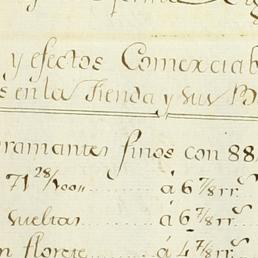 y efectos Comerciab
s en la Tienda y sus B
ramantes finos con 88
71 28/100 á 6 7/8 rr.s
vueltas á 6 7/8 rr.s
n florete á 4 7/8 rr.s